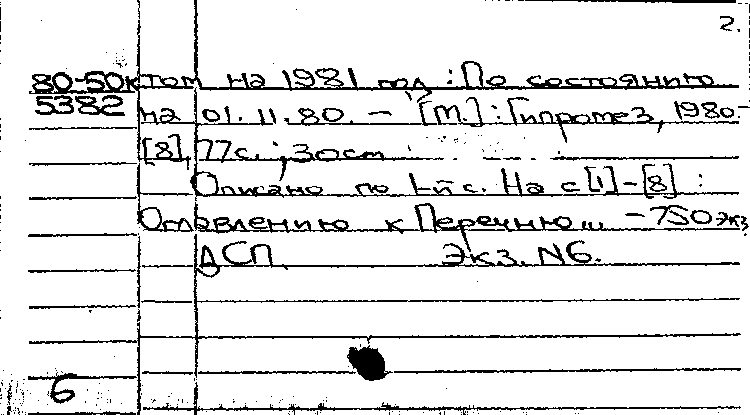 2.
80-50ктом на 1981 год : По состоянию
5382 на 01.11.80. – [М.] : Гипромез, 1980.-
[8], 77с. ; 30см
Описано по 1-й с. На с [1]-[8] :
Оглавлению к Перечню... – 750экз
ДСП Экз. N6.
6